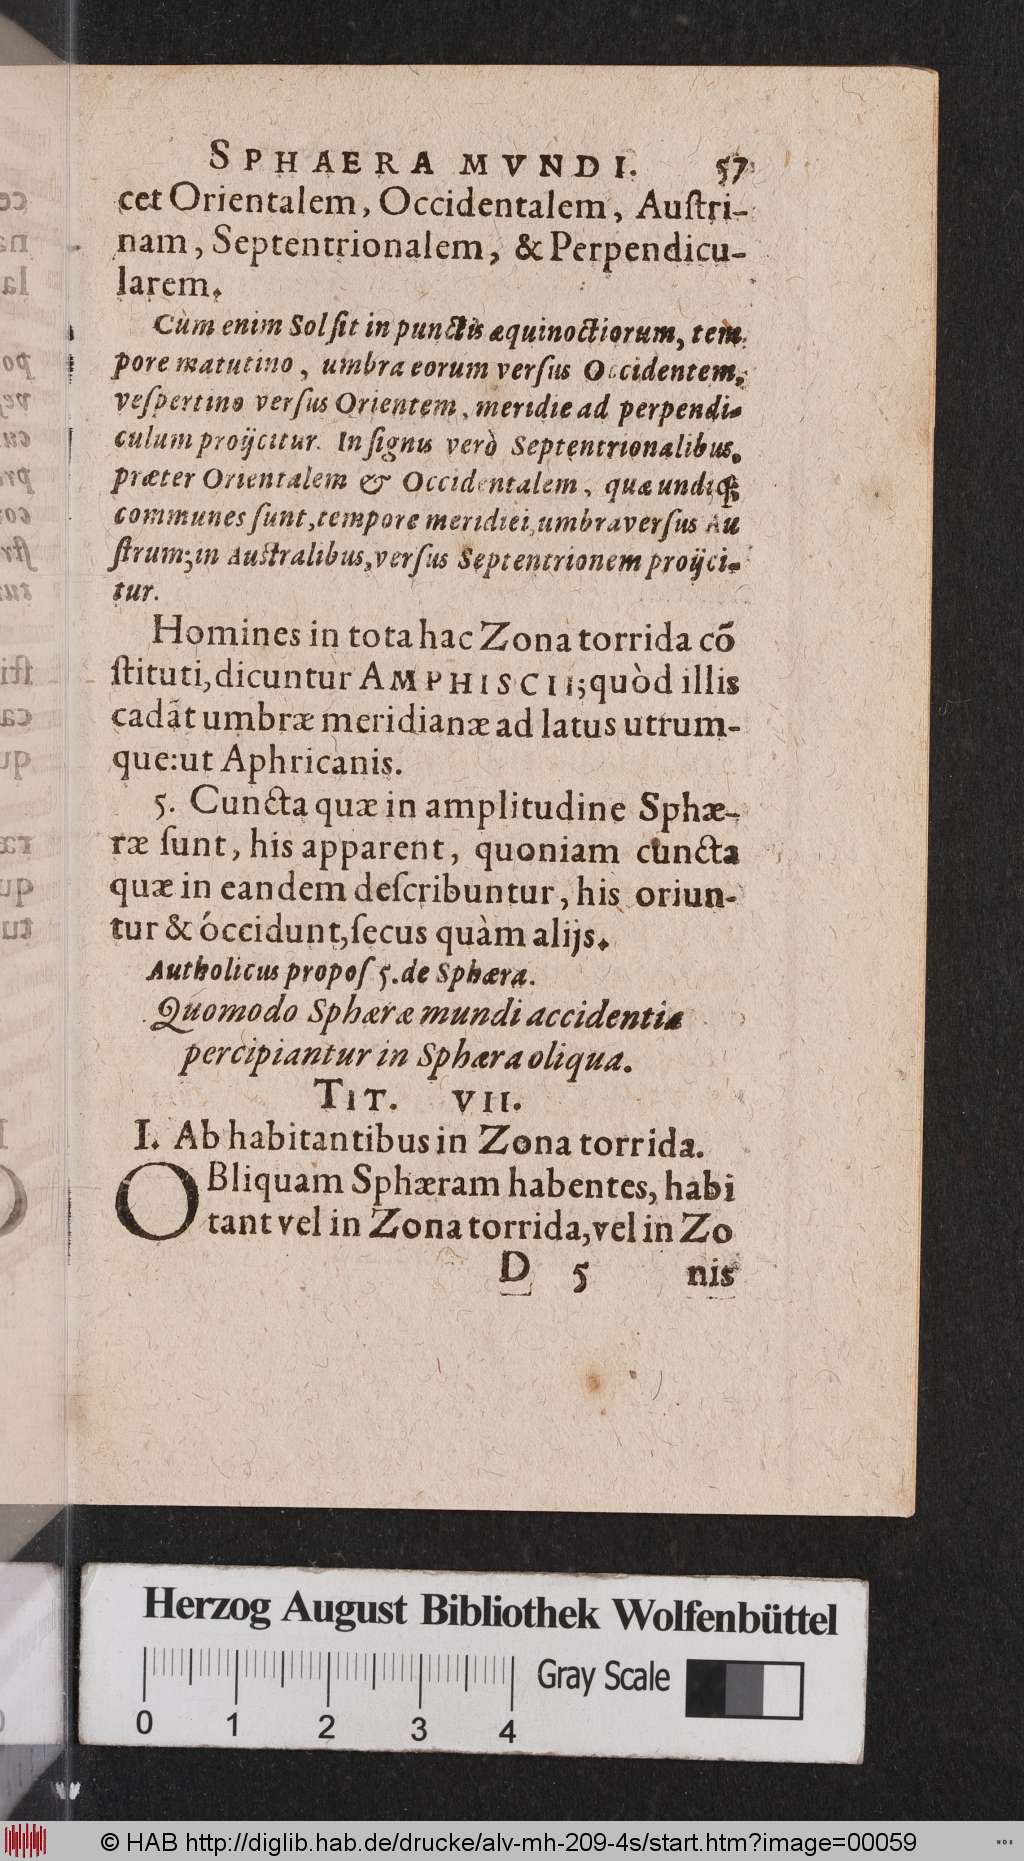 SPHAERA MVNDI. 57
cet Orientalem, Occidentalem, Auſtri-
nam, Septentrionalem, & Perpendicu-
larem.
Cùm enim Sol ſit in punctis æquinoctiorum, tem
pore matutino, umbra eorum verſus Occidentem,
veſpertino verſus Orientem, meridie ad perpendi-
culum proijcitur. In ſignis verò Septentrionalibus,
præter Orientalem & Occidentalem, quæ undiq;
communes ſunt, tempore meridiei, umbra verſus Au
ſtrum; in Auſtralibus, verſus Septentrionem proijci-
tur.
Homines in tota hac Zona torrida cõ
ſtituti, dicuntur AMPHISCII; quòd illis
cadãt umbræ meridianæ ad latus utrum-
que: ut Aphricanis.
5. Cuncta quæ in amplitudine Sphæ-
ræ ſunt, his apparent, quoniam cuncta
quæ in eandem deſcribuntur, his oriun-
tur & óccidunt, ſecus quàm alijs.
Autholicus propoſ 5. de Sphæra.
Quomodo Sphæræ mundi accidentia
percipiantur in Sphæra oliqua.
TIT. VII.
I. Ab habitantibus in Zona torrida.
OBliquam Sphæram habentes, habi
tant vel in Zona torrida, vel in Zo
D 5 nis
Herzog August Bibliothek Wolfenbüttel
Gray Scale
0 1 2 3 4
© HAB http://diglib.hab.de/drucke/alv-mh-209-4s/start.htm?image=00059